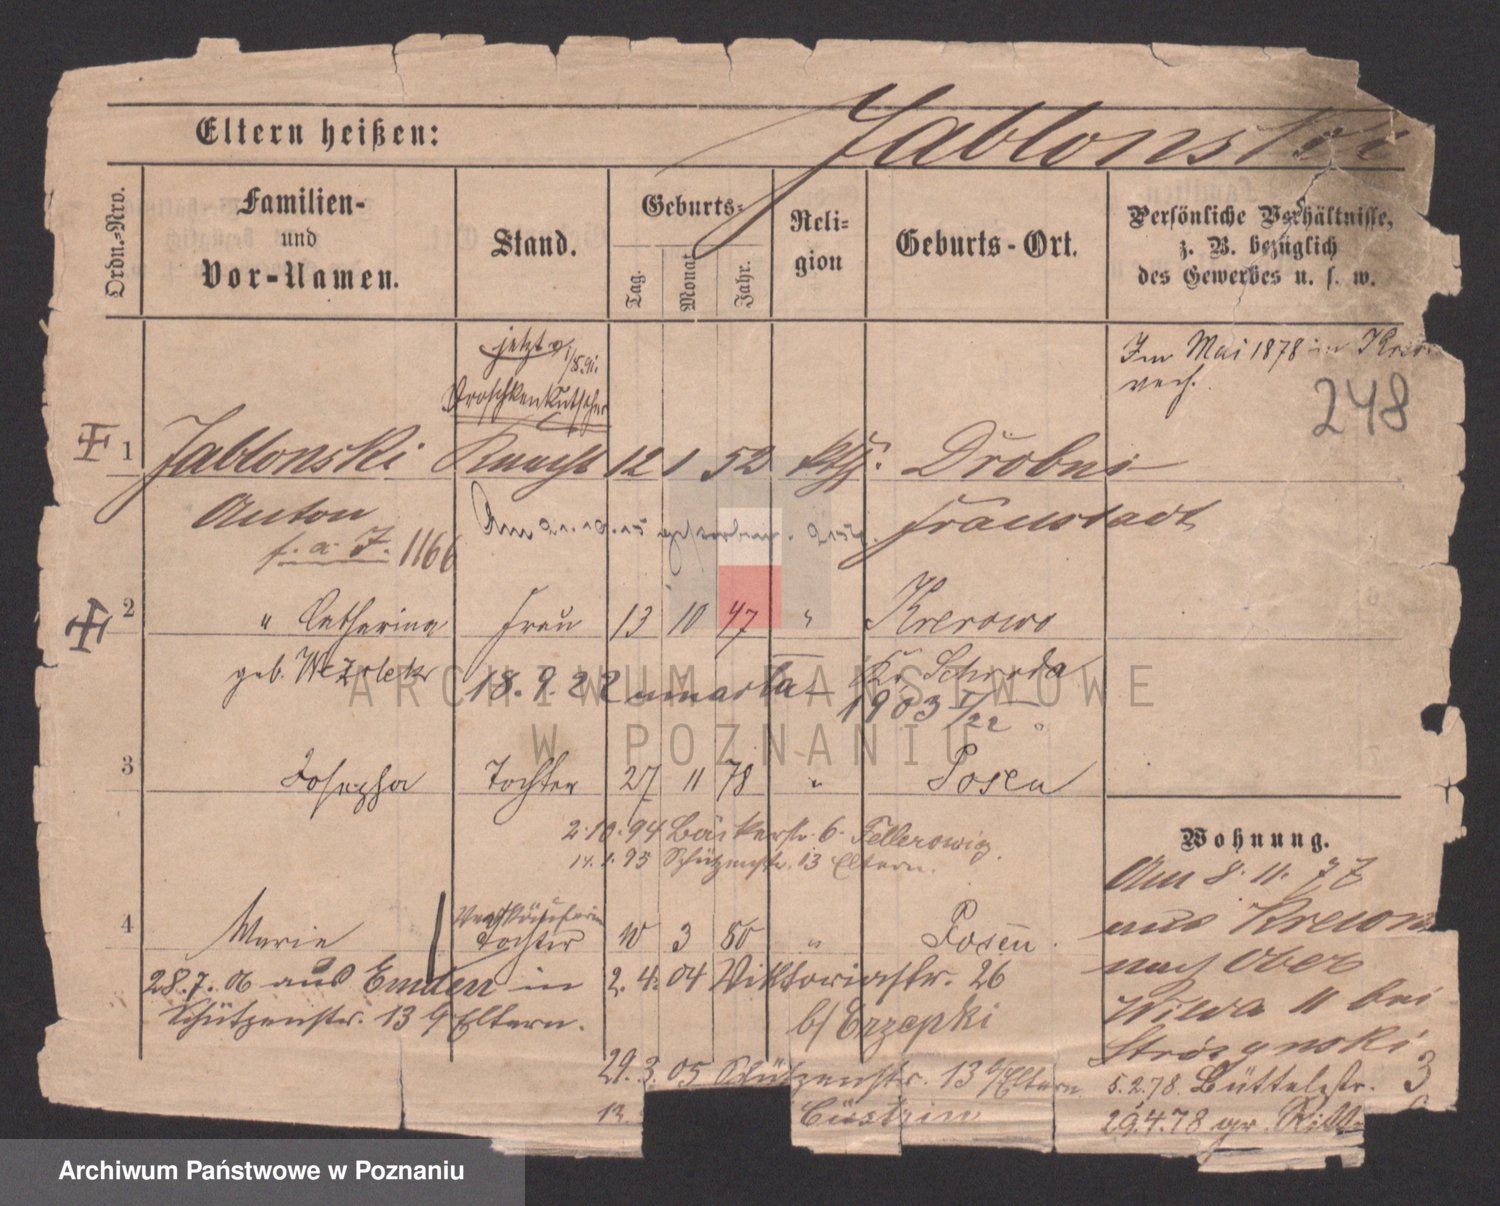 Jablonski
Eltern heißen:
Ordn.-Nro.
Familien-
und
Vor-Namen.
Stand.
Geburts-
Tag.
Monat
Jahr.
Reli-
gion
Geburts-Ort.
Persönliche Verhältnisse,
z. B. bezüglich
des Gewerbes u. s. w.
jetzt
Droschkenkutscher
Im Mai 1878 in
248
1 Jablonski Knecht 12 1 52 kth. Drobni
Anton Am 21.10.15 gestorben. Fraustadt
f. a. J. 1166
2 " Catharina Frau 13 10 47 " Krerowo
geb. 18.9.22 umarła Kr. Schroda
1903 I/22
3 Josepha Tochter 27 11 78 " Posen
2.10.94 Bäckerstr. 6.
14.1.95 Schützenstr. 13 Eltern.
Wohnung.
Am 8.11.77
aus
nach Ober
Wilda 11 bei
5.2.78. Büttelstr. 3
29.4.78 gr.
4 Marie Tochter 10 3 80 " Posen.
28.7.06 aus Emden in 2.4.04 Viktoriastr. 26
Schützenstr. 13 b/Eltern. b/ Erzepki
29.3.05 Schützenstr. 13 b/Eltern
13. Cüstrin
ARCHIWUM PAŃSTWOWE
W POZNANIU
Archiwum Państwowe w Poznaniu